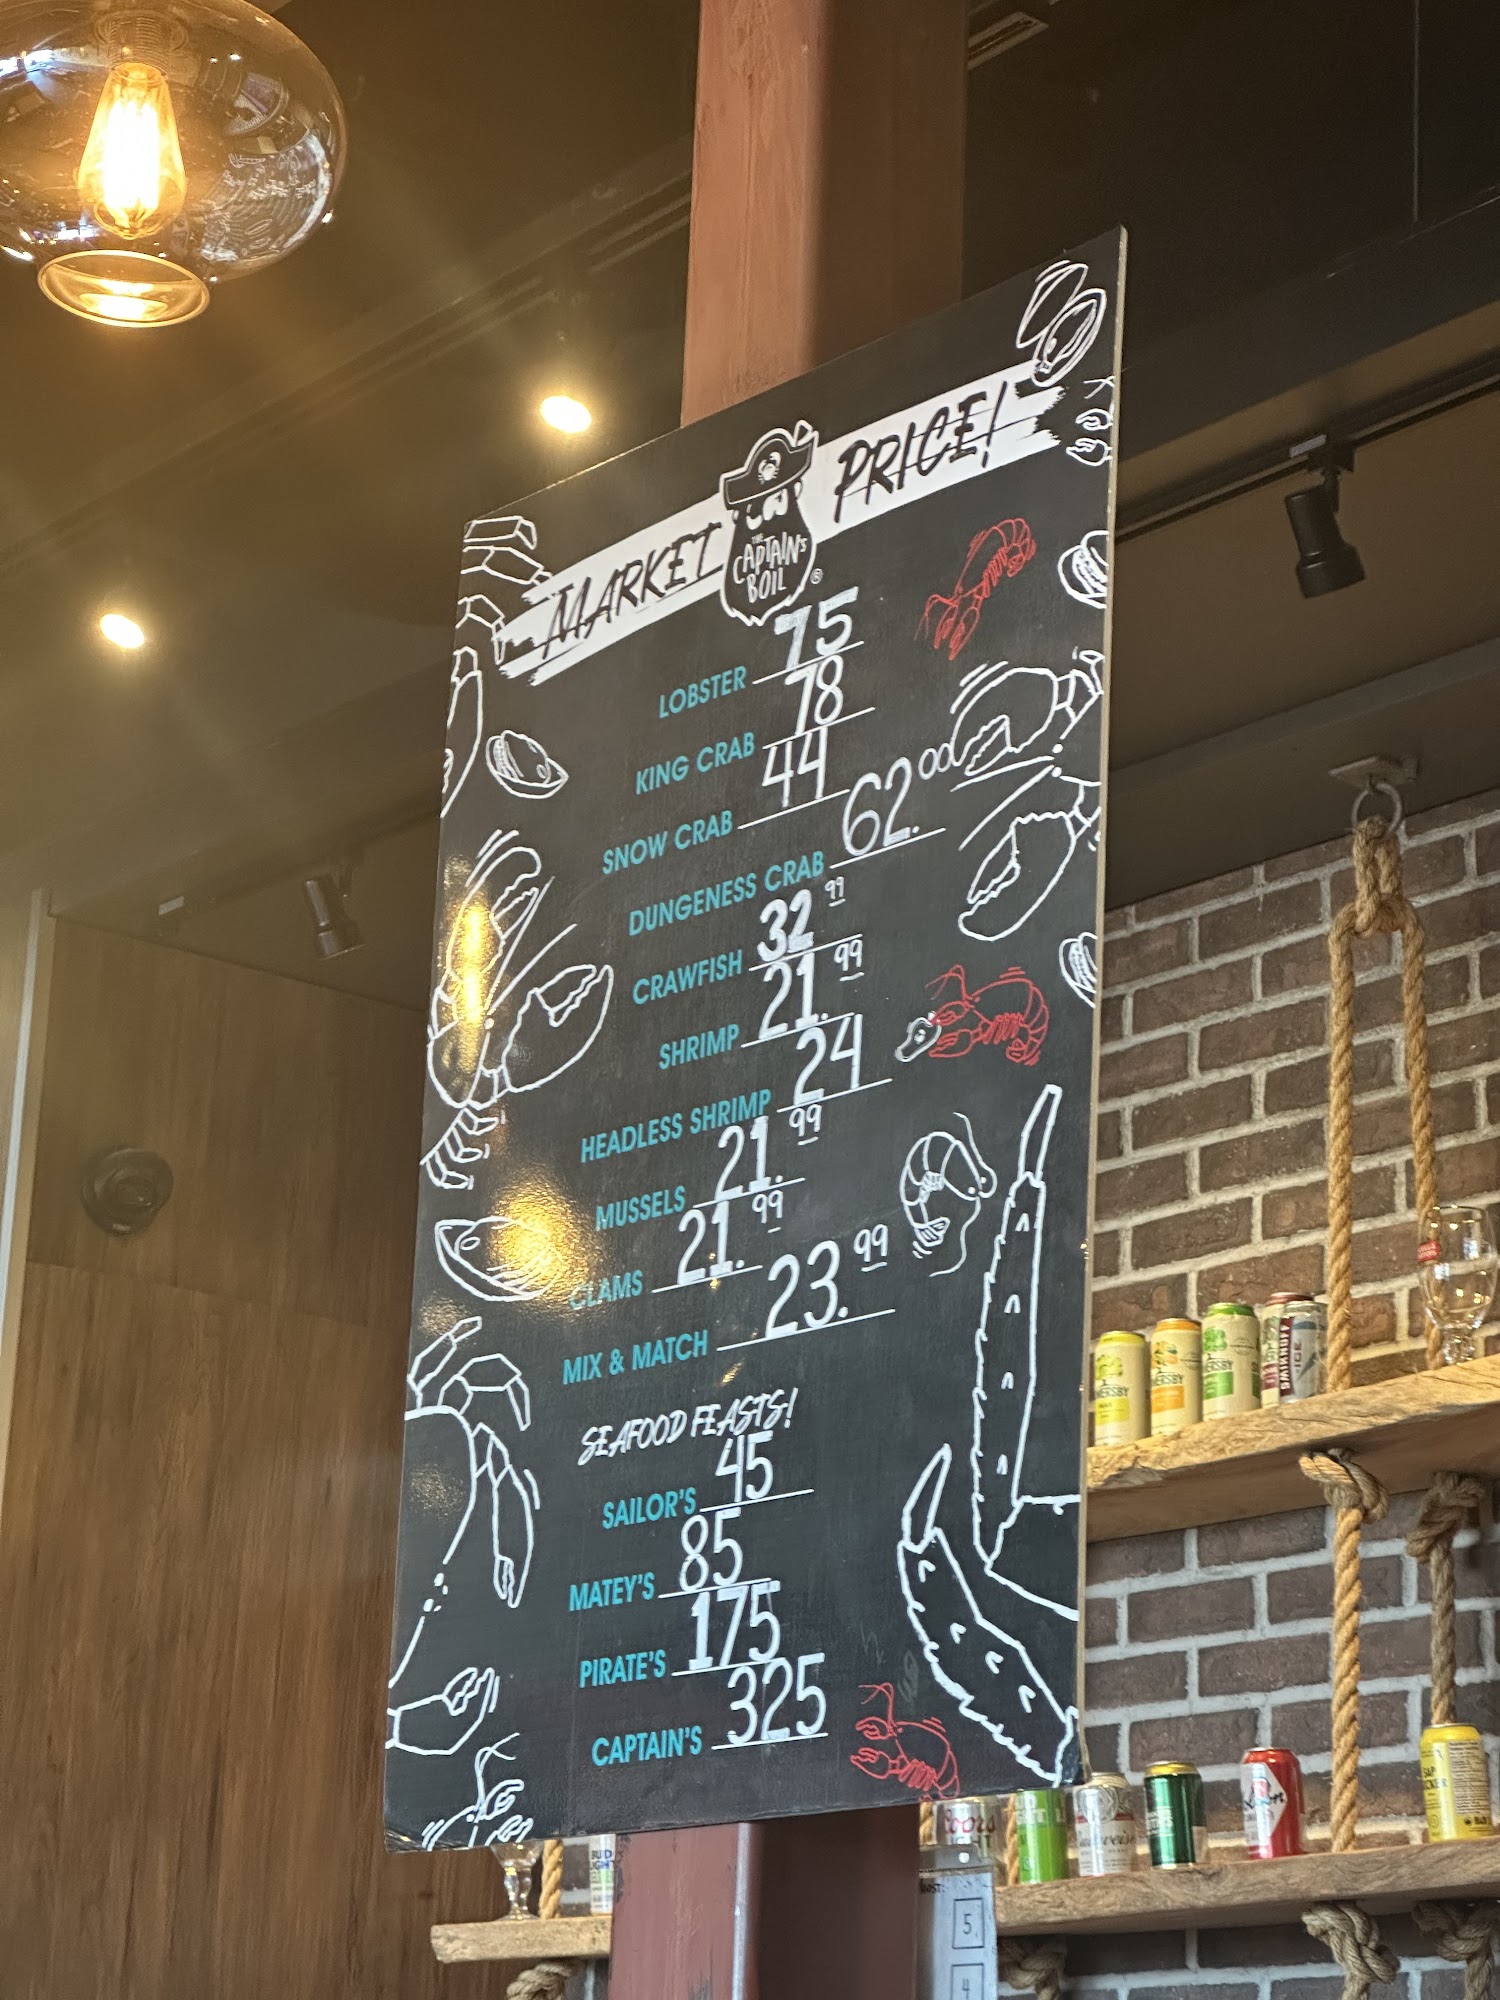 MARKET PRICE!
THE
CAPTAIN'S
BOIL
®
LOBSTER 75
KING CRAB 78
SNOW CRAB 44
DUNGENESS CRAB 62.00
CRAWFISH 32 99
SHRIMP 21.99
HEADLESS SHRIMP 24
MUSSELS 21.99
CLAMS 21.99
MIX & MATCH 23.99
SEAFOOD FEASTS!
SAILOR'S 45
MATEY'S 85
PIRATE'S 175
CAPTAIN'S 325
SMIRNOFF
ICE
Coors
LIGHT
BUD
LIGHT
5
4